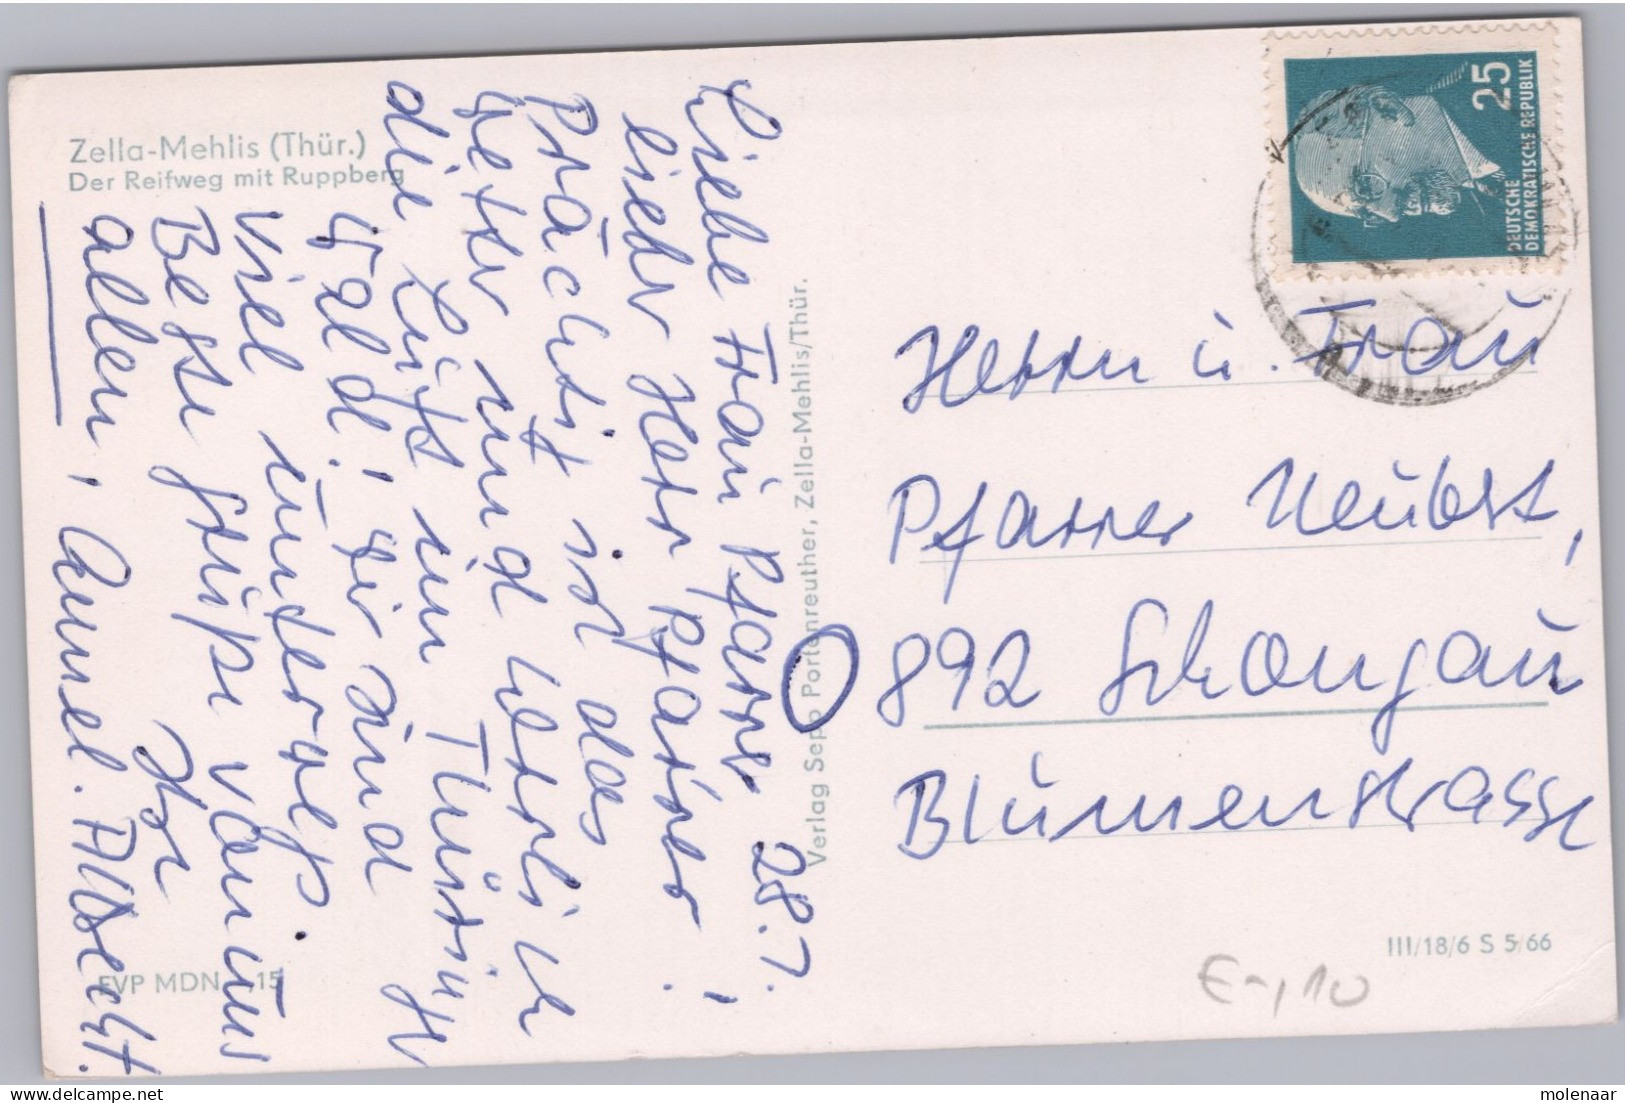 Zella-Mehlis (Thür.)
Der Reifweg mit Ruppberg
28.7.
Liebe Frau Pfarrer,
lieber Herr Pfarrer!
Prächtig ist das
Wetter und herrlich
die Luft im Thüringer
Wald! Wir sind
viel unterwegs.
Beste Grüße von uns
allen, Ihr
Albrecht.
EVP MDN -,15
Verlag Sepp Portenreuther, Zella-Mehlis/Thür.
25
DEUTSCHE
DEMOKRATISCHE REPUBLIK
Herrn u. Frau
Pfarrer Neubert,
892 Schongau
Blumenstrasse
III/18/6 S 5/66
€-,10
molenaar